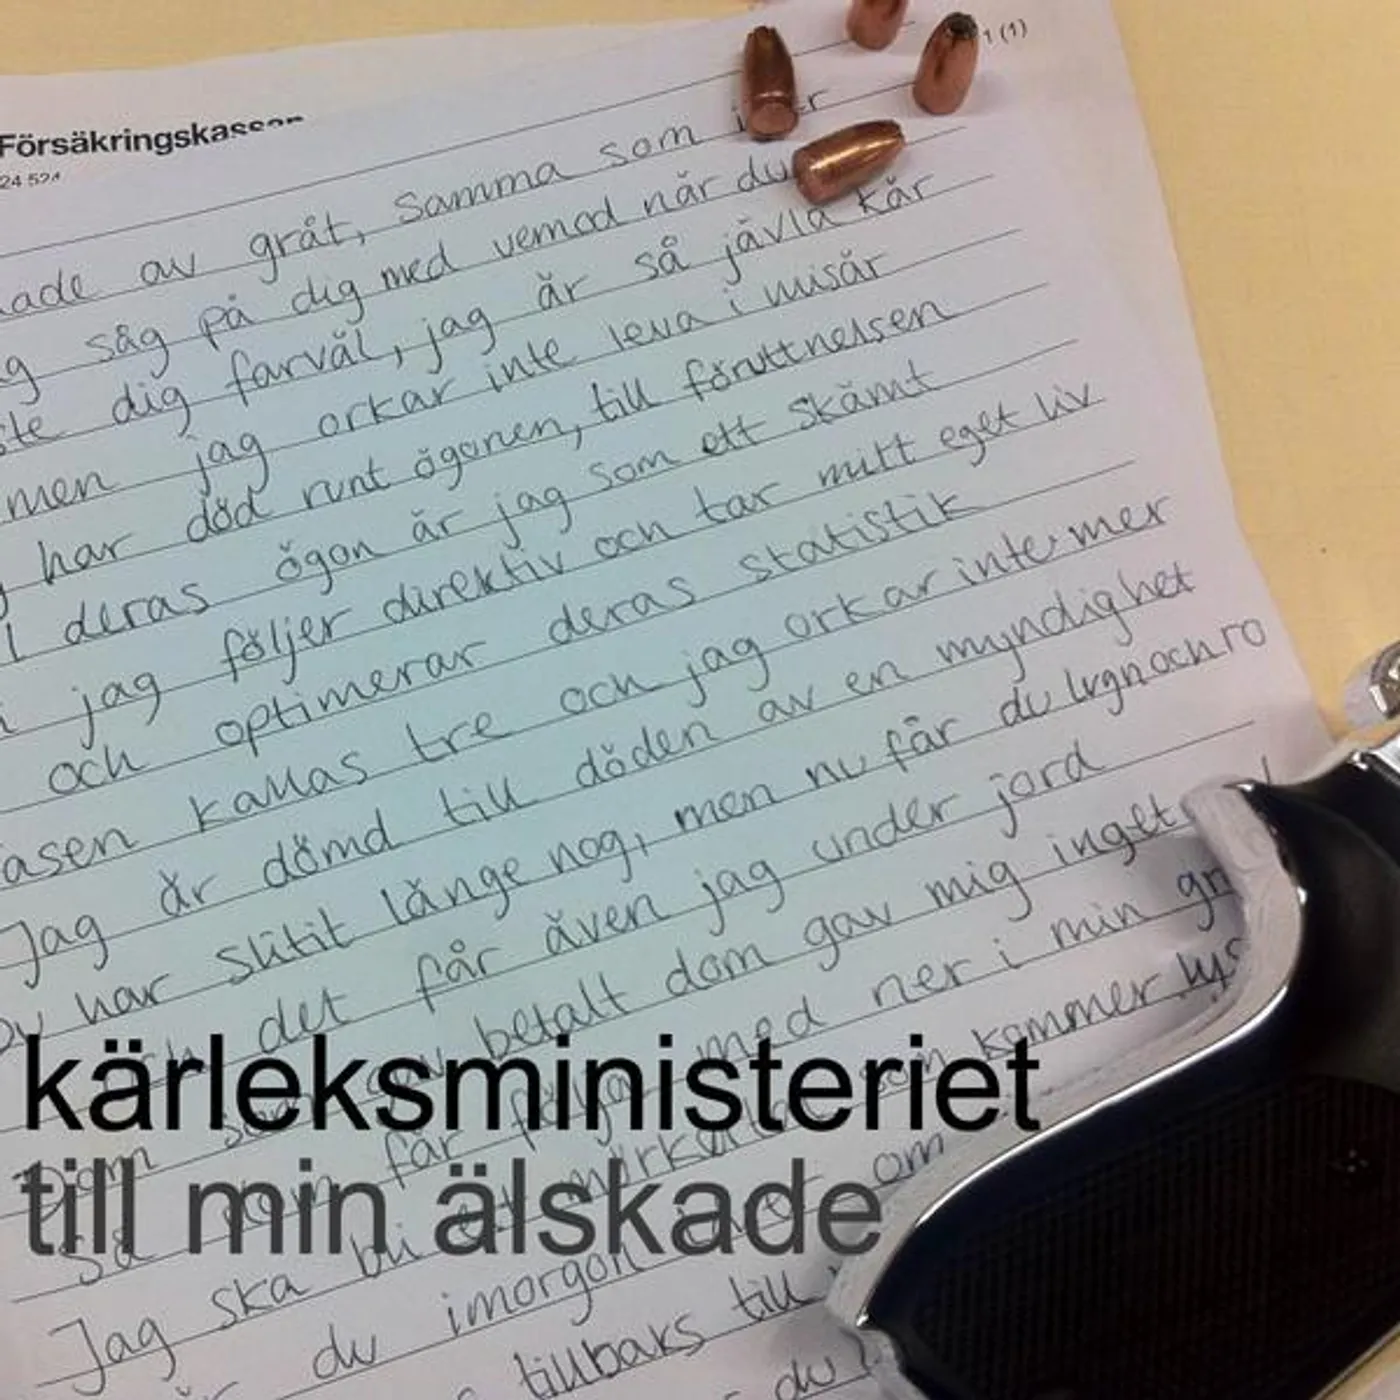 1 (1)
Försäkringskassan
24 524
ade av gråt, samma som i
g såg på dig med vemod när du
ste dig farväl, jag är så jävla kär
men jag orkar inte leva i misär
har död runt ögonen, till föruttnelsen
I deras ögon är jag som ett skämt
jag följer direktiv och tar mitt eget liv
och optimerar deras statistik
asen kallas tre och jag orkar inte mer
Jag är dömd till döden av en myndighet
Du har slitit länge nog, men nu får du lugn och ro
och det får även jag under jord
Dom betalt dom gav mig inget
Så får följa med ner i min gr
Jag ska bli som kommer lys
du imorgon om
tillbaks till
du
kärleksministeriet
till min älskade